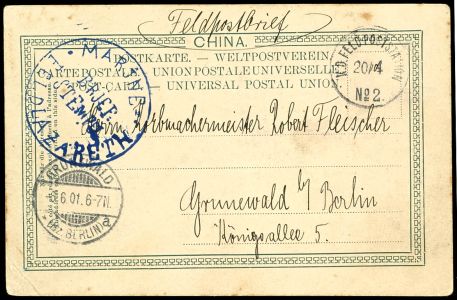 Feldpostbrief
CHINA.
POSTKARTE. — WELTPOSTVEREIN
CARTE POSTALE — UNION POSTALE UNIVERSELLE
POST-CARD. — UNIVERSAL POSTAL UNION
MARINE-
BRIEF-
STEMPEL
FELDLAZARETH
K.D. FELD-POSTSTATION
20/4
No 2.
Herrn Korbmachermeister Robert Fleischer
GRUNEWALD
6.01. 6-7N.
(BZ. BERLIN) a
Grunewald b/ Berlin
Königsallee 5.